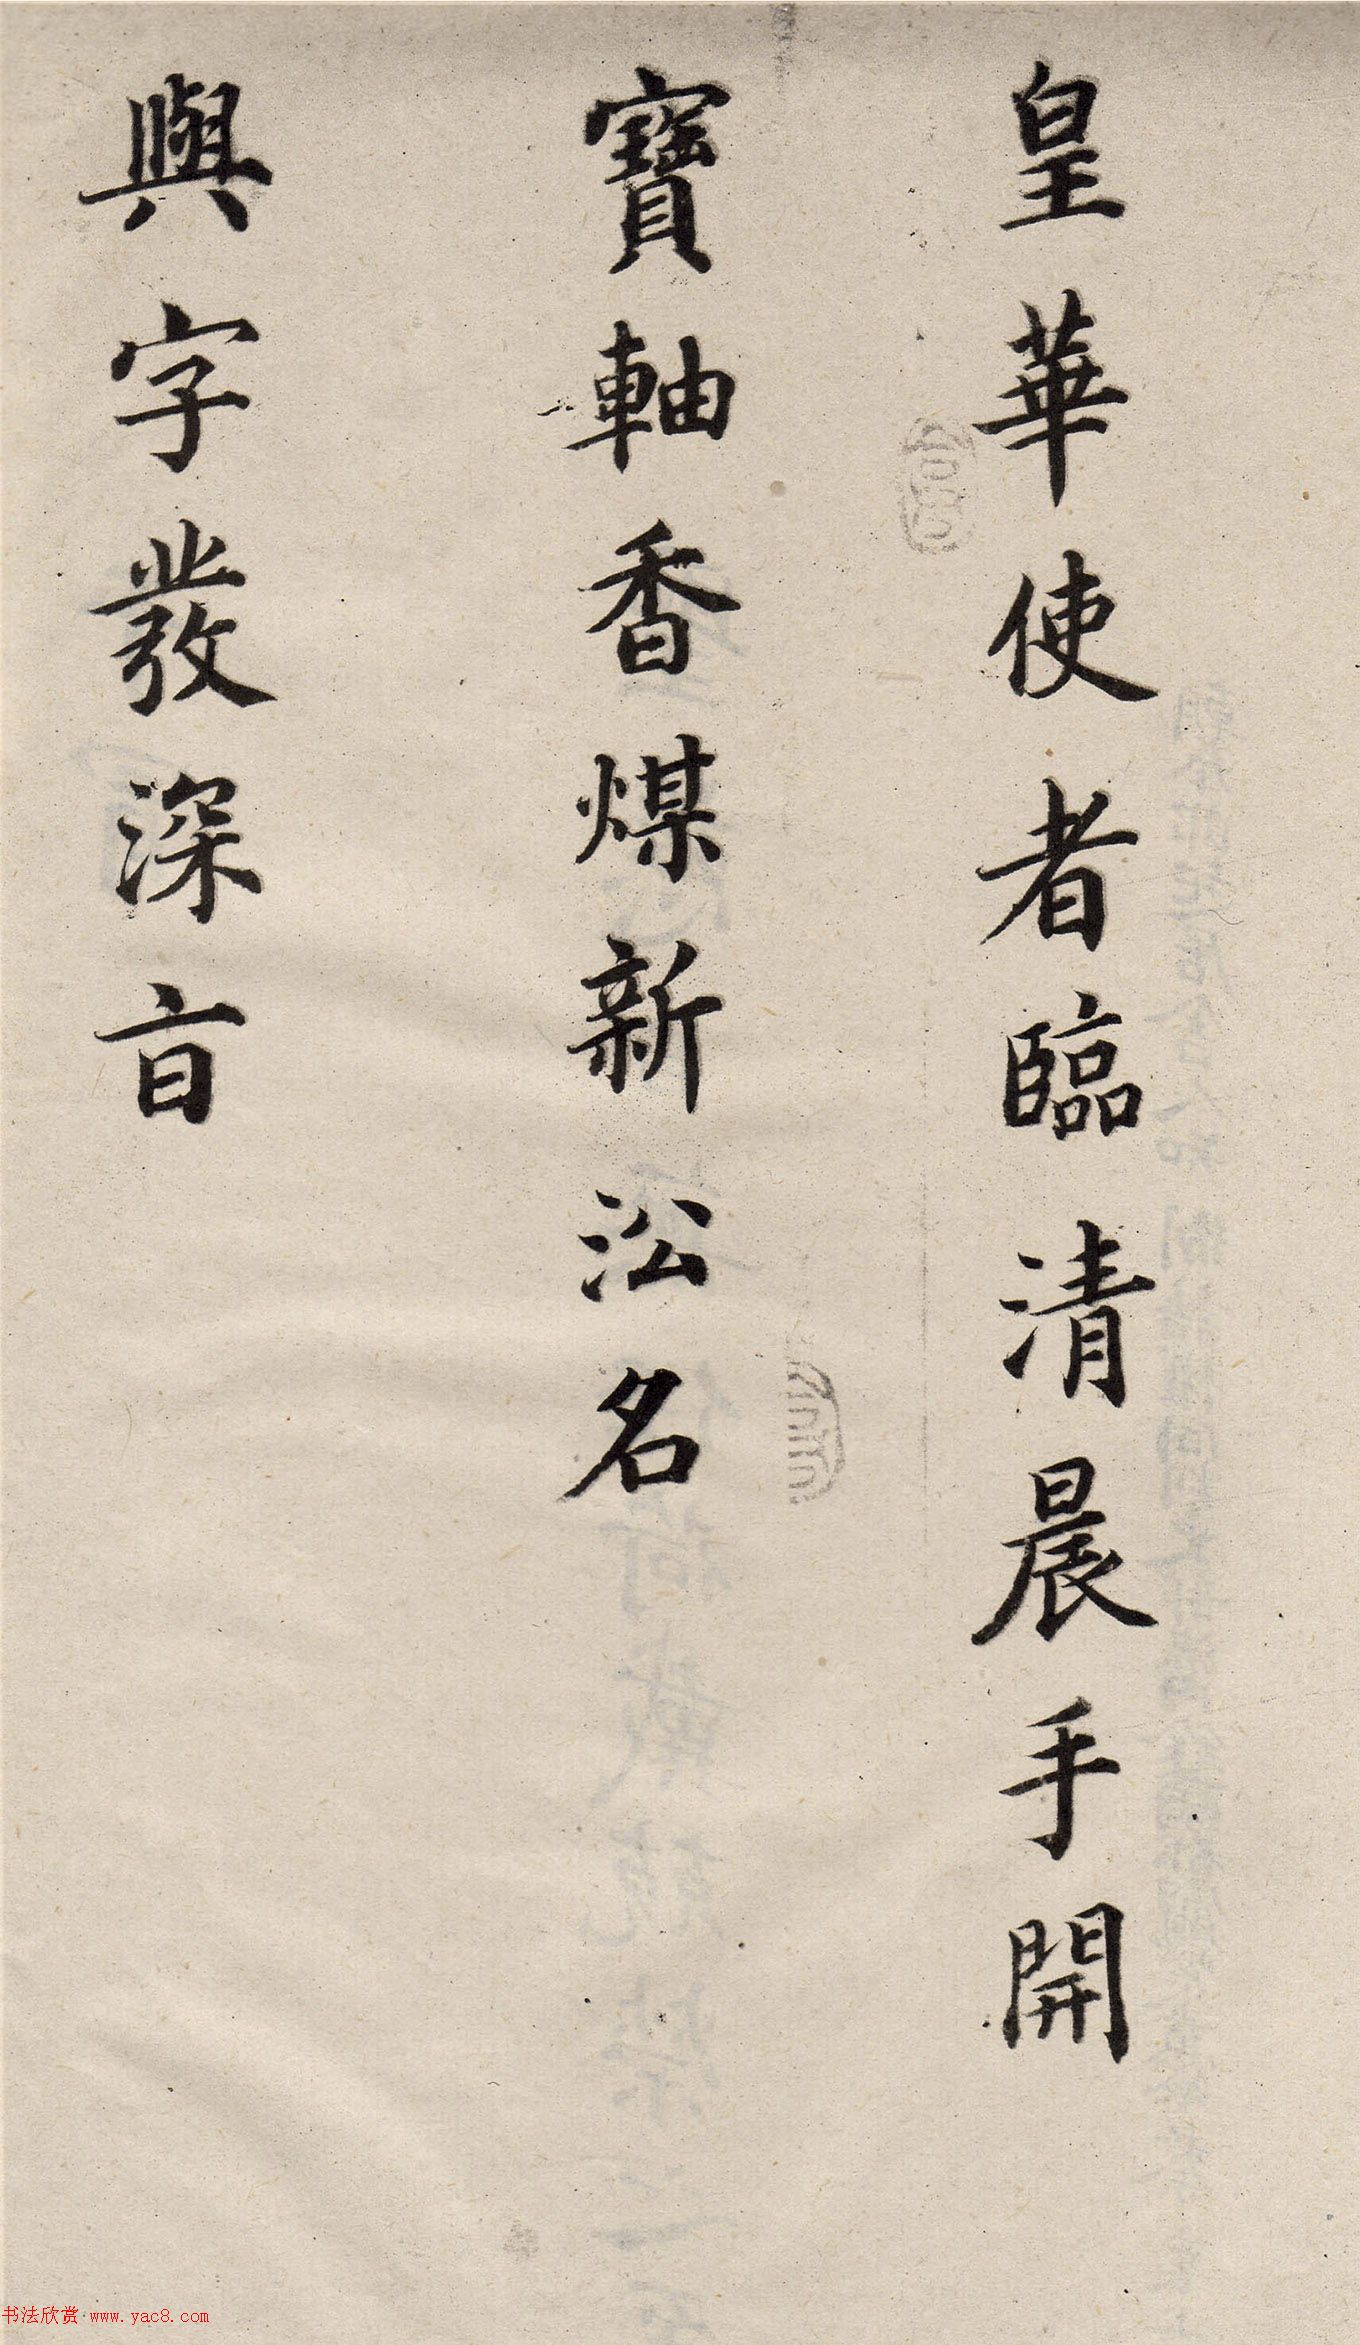 皇華使者臨清晨手開
寶軸香煤新㳂名
與字發深㫖
书法欣赏·www.yac8.com